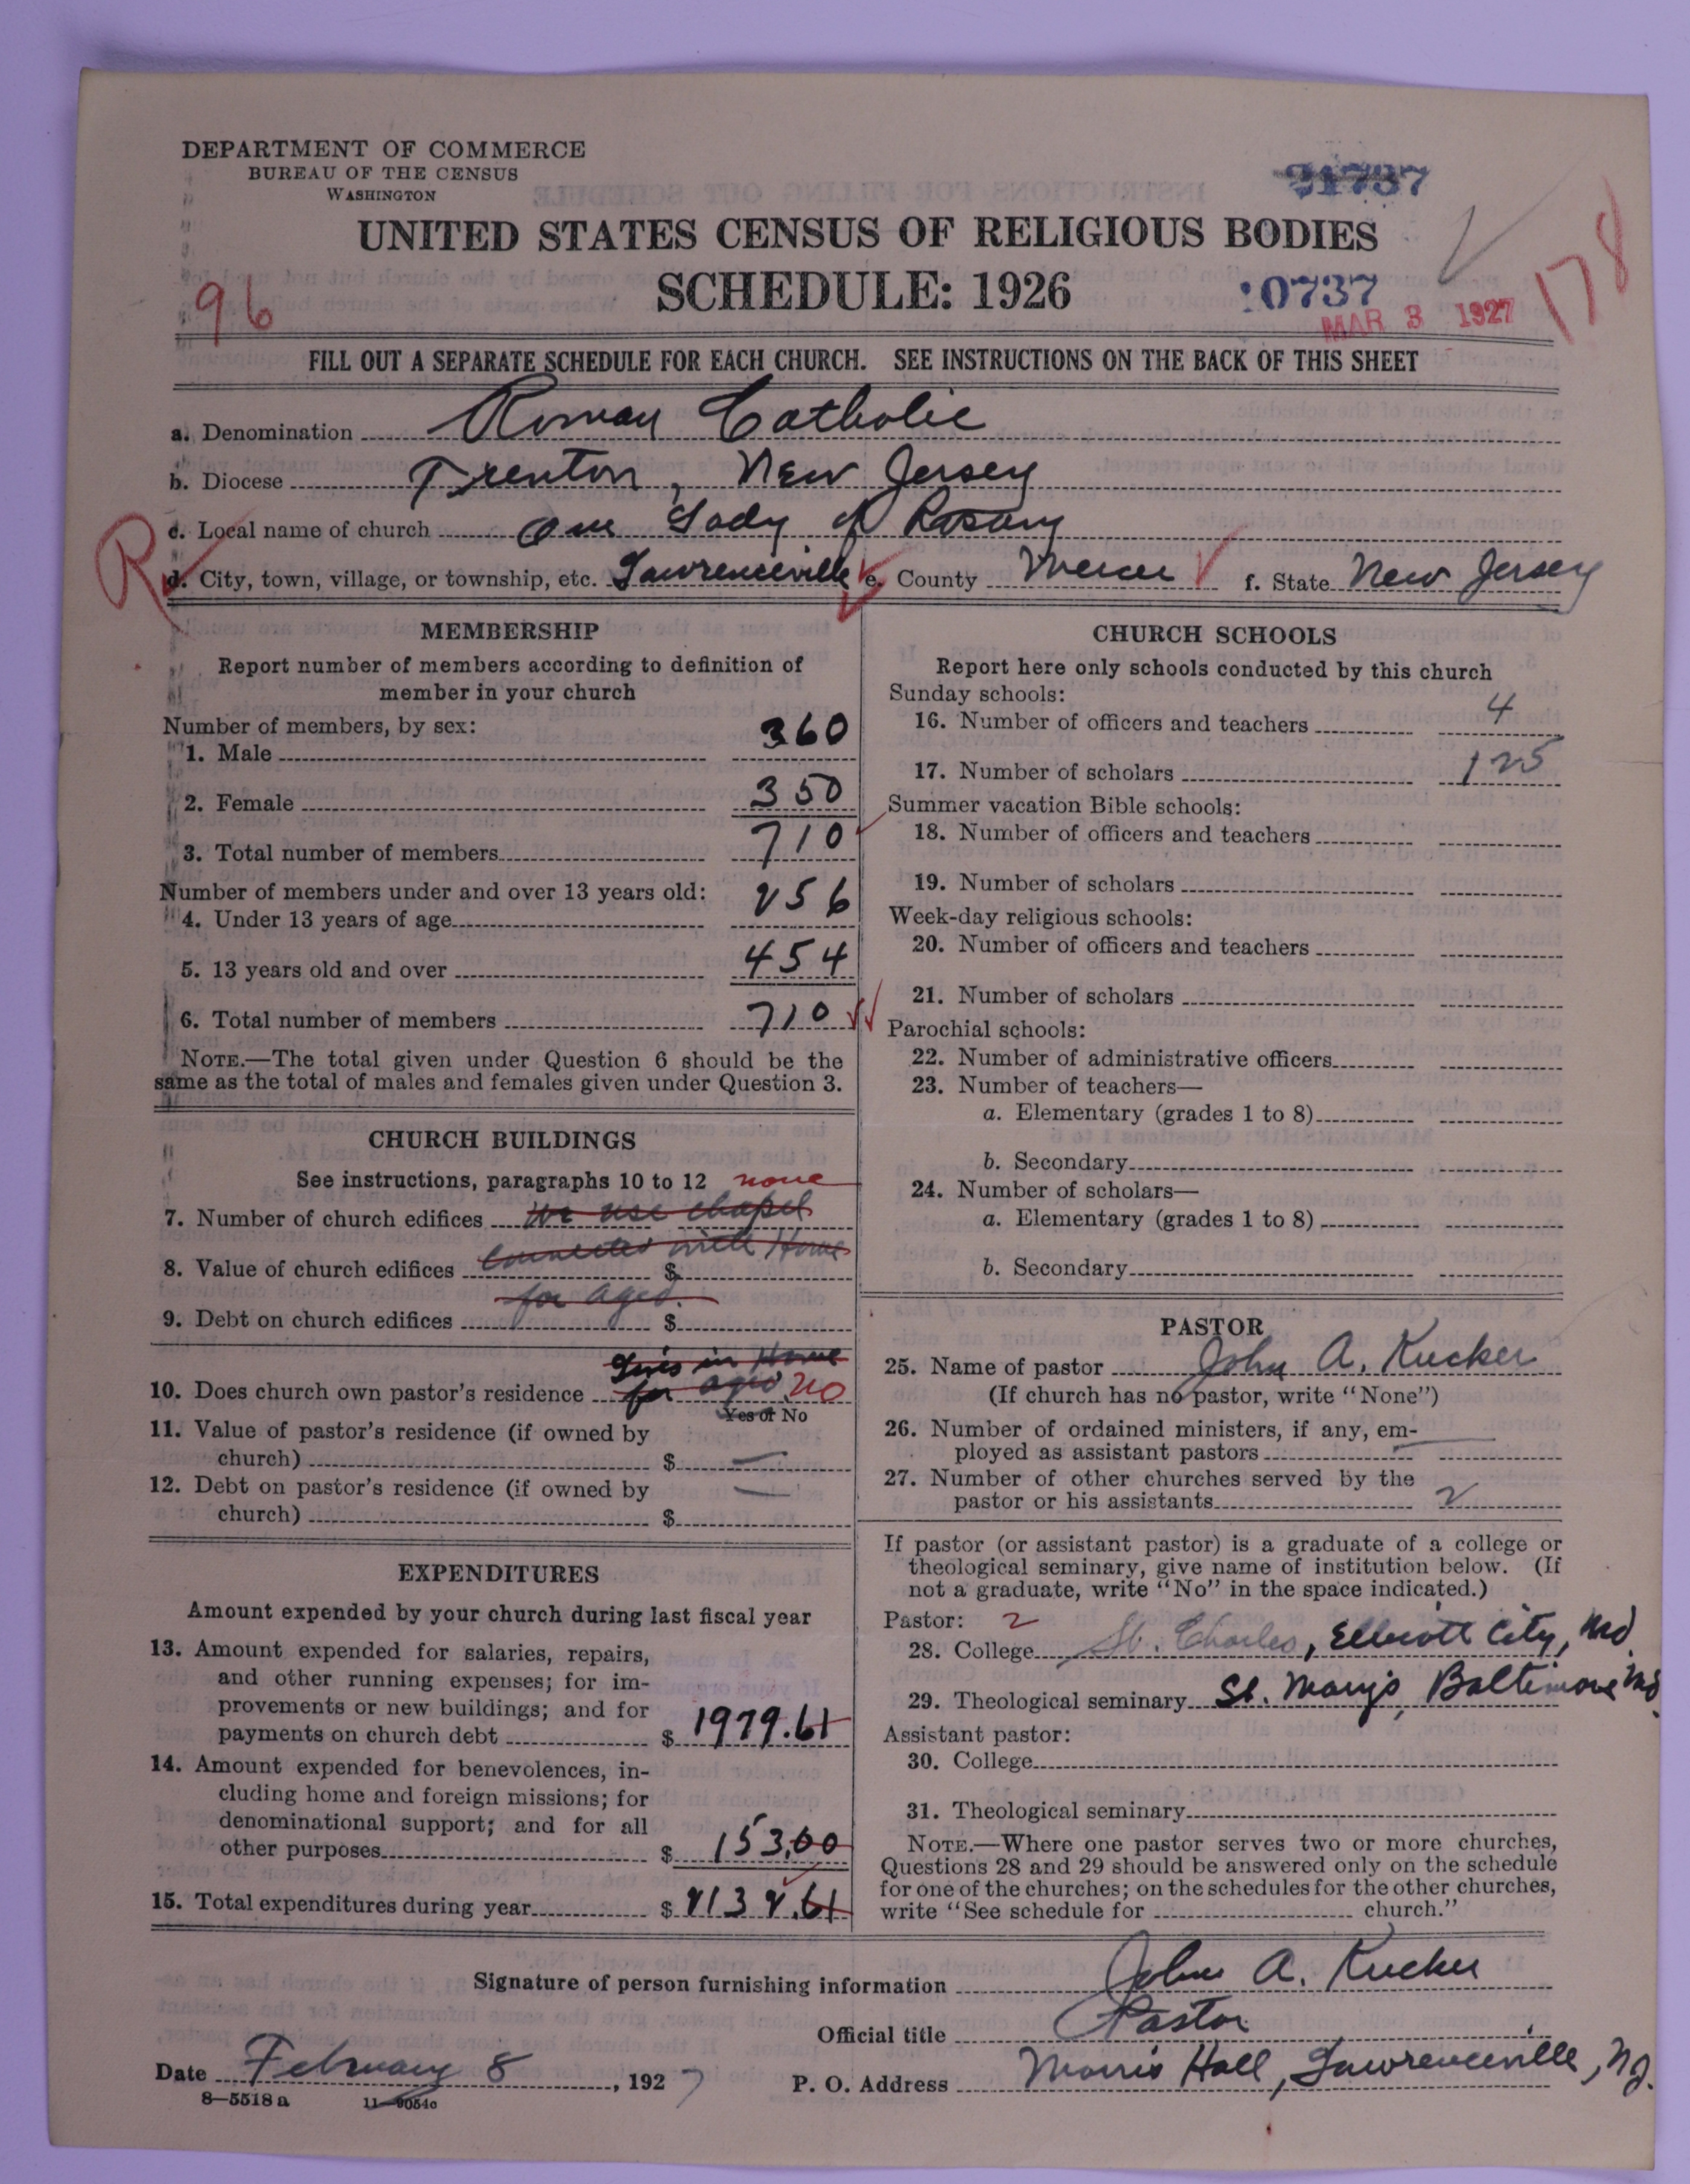 DEPARTMENT OF COMMERCE
BUREAU OF THE CENSUS
WASHINGTON
21737
UNITED STATES CENSUS OF RELIGIOUS BODIES
SCHEDULE: 1926
96
0737
MAR 3 1927
178
FILL OUT A SEPARATE SCHEDULE FOR EACH CHURCH. SEE INSTRUCTIONS ON THE BACK OF THIS SHEET
a. Denomination Roman Catholic
b. Diocese Trenton, New Jersey
R
c. Local name of church Our Lady of Rosary
d. City, town, village, or township, etc. Lawrenceville e. County Mercer f. State New Jersey
MEMBERSHIP
Report number of members according to definition of
member in your church
Number of members, by sex:
1. Male 360
2. Female 350
3. Total number of members 710
Number of members under and over 13 years old:
4. Under 13 years of age 256
5. 13 years old and over 454
6. Total number of members 710
NOTE.—The total given under Question 6 should be the
same as the total of males and females given under Question 3.
CHURCH BUILDINGS
See instructions, paragraphs 10 to 12 none
7. Number of church edifices We use chapel
connected with Home
8. Value of church edifices $
for aged.
9. Debt on church edifices $
Lives in Home
10. Does church own pastor's residence for aged No
Yes or No
11. Value of pastor's residence (if owned by
church) $ —
12. Debt on pastor's residence (if owned by
church) $ —
EXPENDITURES
Amount expended by your church during last fiscal year
13. Amount expended for salaries, repairs,
and other running expenses; for im-
provements or new buildings; and for
payments on church debt $ 1979.61
14. Amount expended for benevolences, in-
cluding home and foreign missions; for
denominational support; and for all
other purposes $ 153.00
15. Total expenditures during year $ 2132.61
CHURCH SCHOOLS
Report here only schools conducted by this church
Sunday schools:
16. Number of officers and teachers 4
17. Number of scholars 125
Summer vacation Bible schools:
18. Number of officers and teachers
19. Number of scholars
Week-day religious schools:
20. Number of officers and teachers
21. Number of scholars
Parochial schools:
22. Number of administrative officers
23. Number of teachers—
a. Elementary (grades 1 to 8)
b. Secondary
24. Number of scholars—
a. Elementary (grades 1 to 8)
b. Secondary
PASTOR
25. Name of pastor John A. Kucker
(If church has no pastor, write "None")
26. Number of ordained ministers, if any, em-
ployed as assistant pastors —
27. Number of other churches served by the
pastor or his assistants 2
If pastor (or assistant pastor) is a graduate of a college or
theological seminary, give name of institution below. (If
not a graduate, write "No" in the space indicated.)
Pastor: 2
28. College St. Charles, Ellicott City, Md.
29. Theological seminary St. Mary's, Baltimore Md.
Assistant pastor:
30. College
31. Theological seminary
NOTE.—Where one pastor serves two or more churches,
Questions 28 and 29 should be answered only on the schedule
for one of the churches; on the schedules for the other churches,
write "See schedule for church."
Signature of person furnishing information John A. Kucker
Official title Pastor
Date February 8, 1927
P. O. Address Morris Hall, Lawrenceville, N.J.
8—5518 a 11—9054c